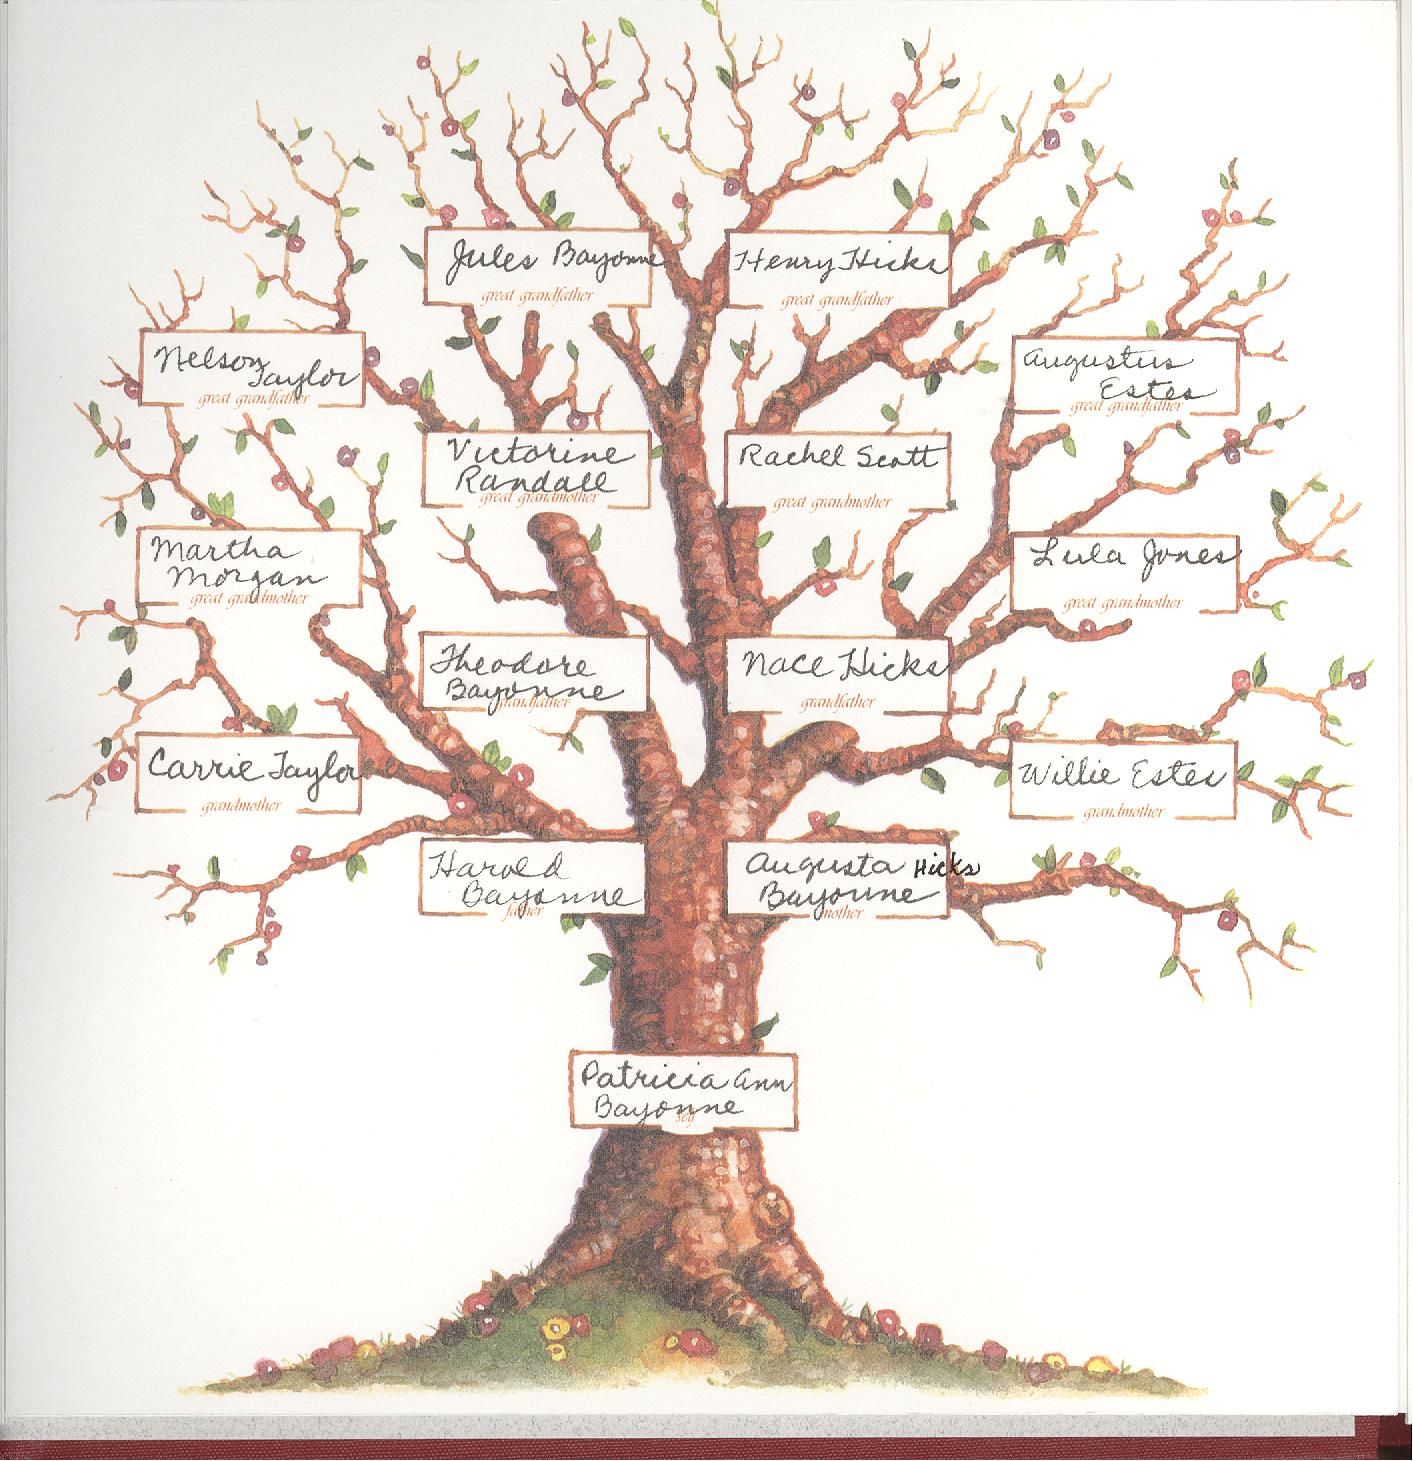 Jules Bayonne
great grandfather
Henry Hicks
great grandfather
Nelson
Taylor
great grandfather
Augustus
Estes
great grandfather
Victorine
Randall
great grandmother
Rachel Scott
great grandmother
Martha
Morgan
great grandmother
Lula Jones
great grandmother
Theodore
Bayonne
grandfather
Nace Hicks
grandfather
Carrie Taylor
grandmother
Willie Estes
grandmother
Harold
Bayonne
father
Augusta Hicks
Bayonne
mother
Patricia Ann
Bayonne
self